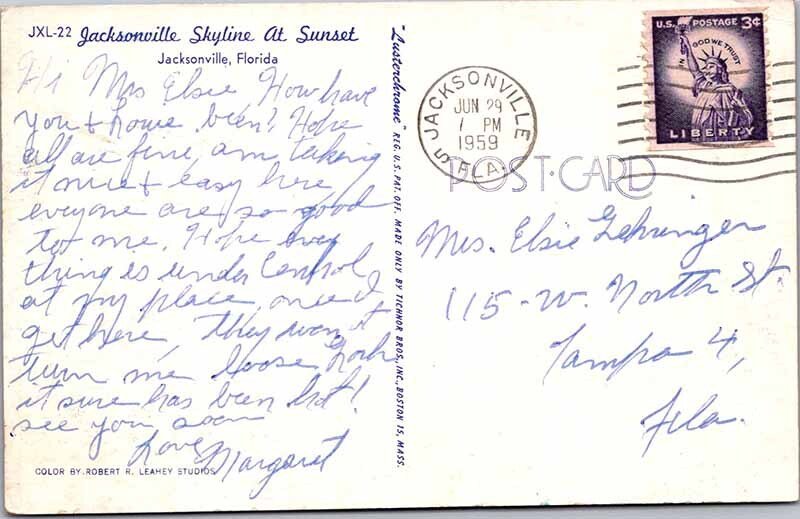 JXL-22 Jacksonville Skyline At Sunset
Jacksonville, Florida
Hi Mrs Elsie, How have
you & home been? Hope
all are fine, am taking
it nice & easy here,
everyone are so good
to me. Hope every
thing is under Control
at my place once I
get here, they won't
turn me loose
it sure has been hot!
see you soon
Love, Margaret
COLOR BY ROBERT R. LEAHEY STUDIOS
"Lusterchrome" REG. U.S. PAT. OFF. MADE ONLY BY TICHNOR BROS., INC., BOSTON 15, MASS.
JACKSONVILLE
JUN 29
PM
1959
5 FLA.
U.S. POSTAGE 3¢
IN GOD WE TRUST
LIBERTY
POST-CARD
Mrs. Elsie Gehringer
115-W. North St.
Tampa 4,
Fla.